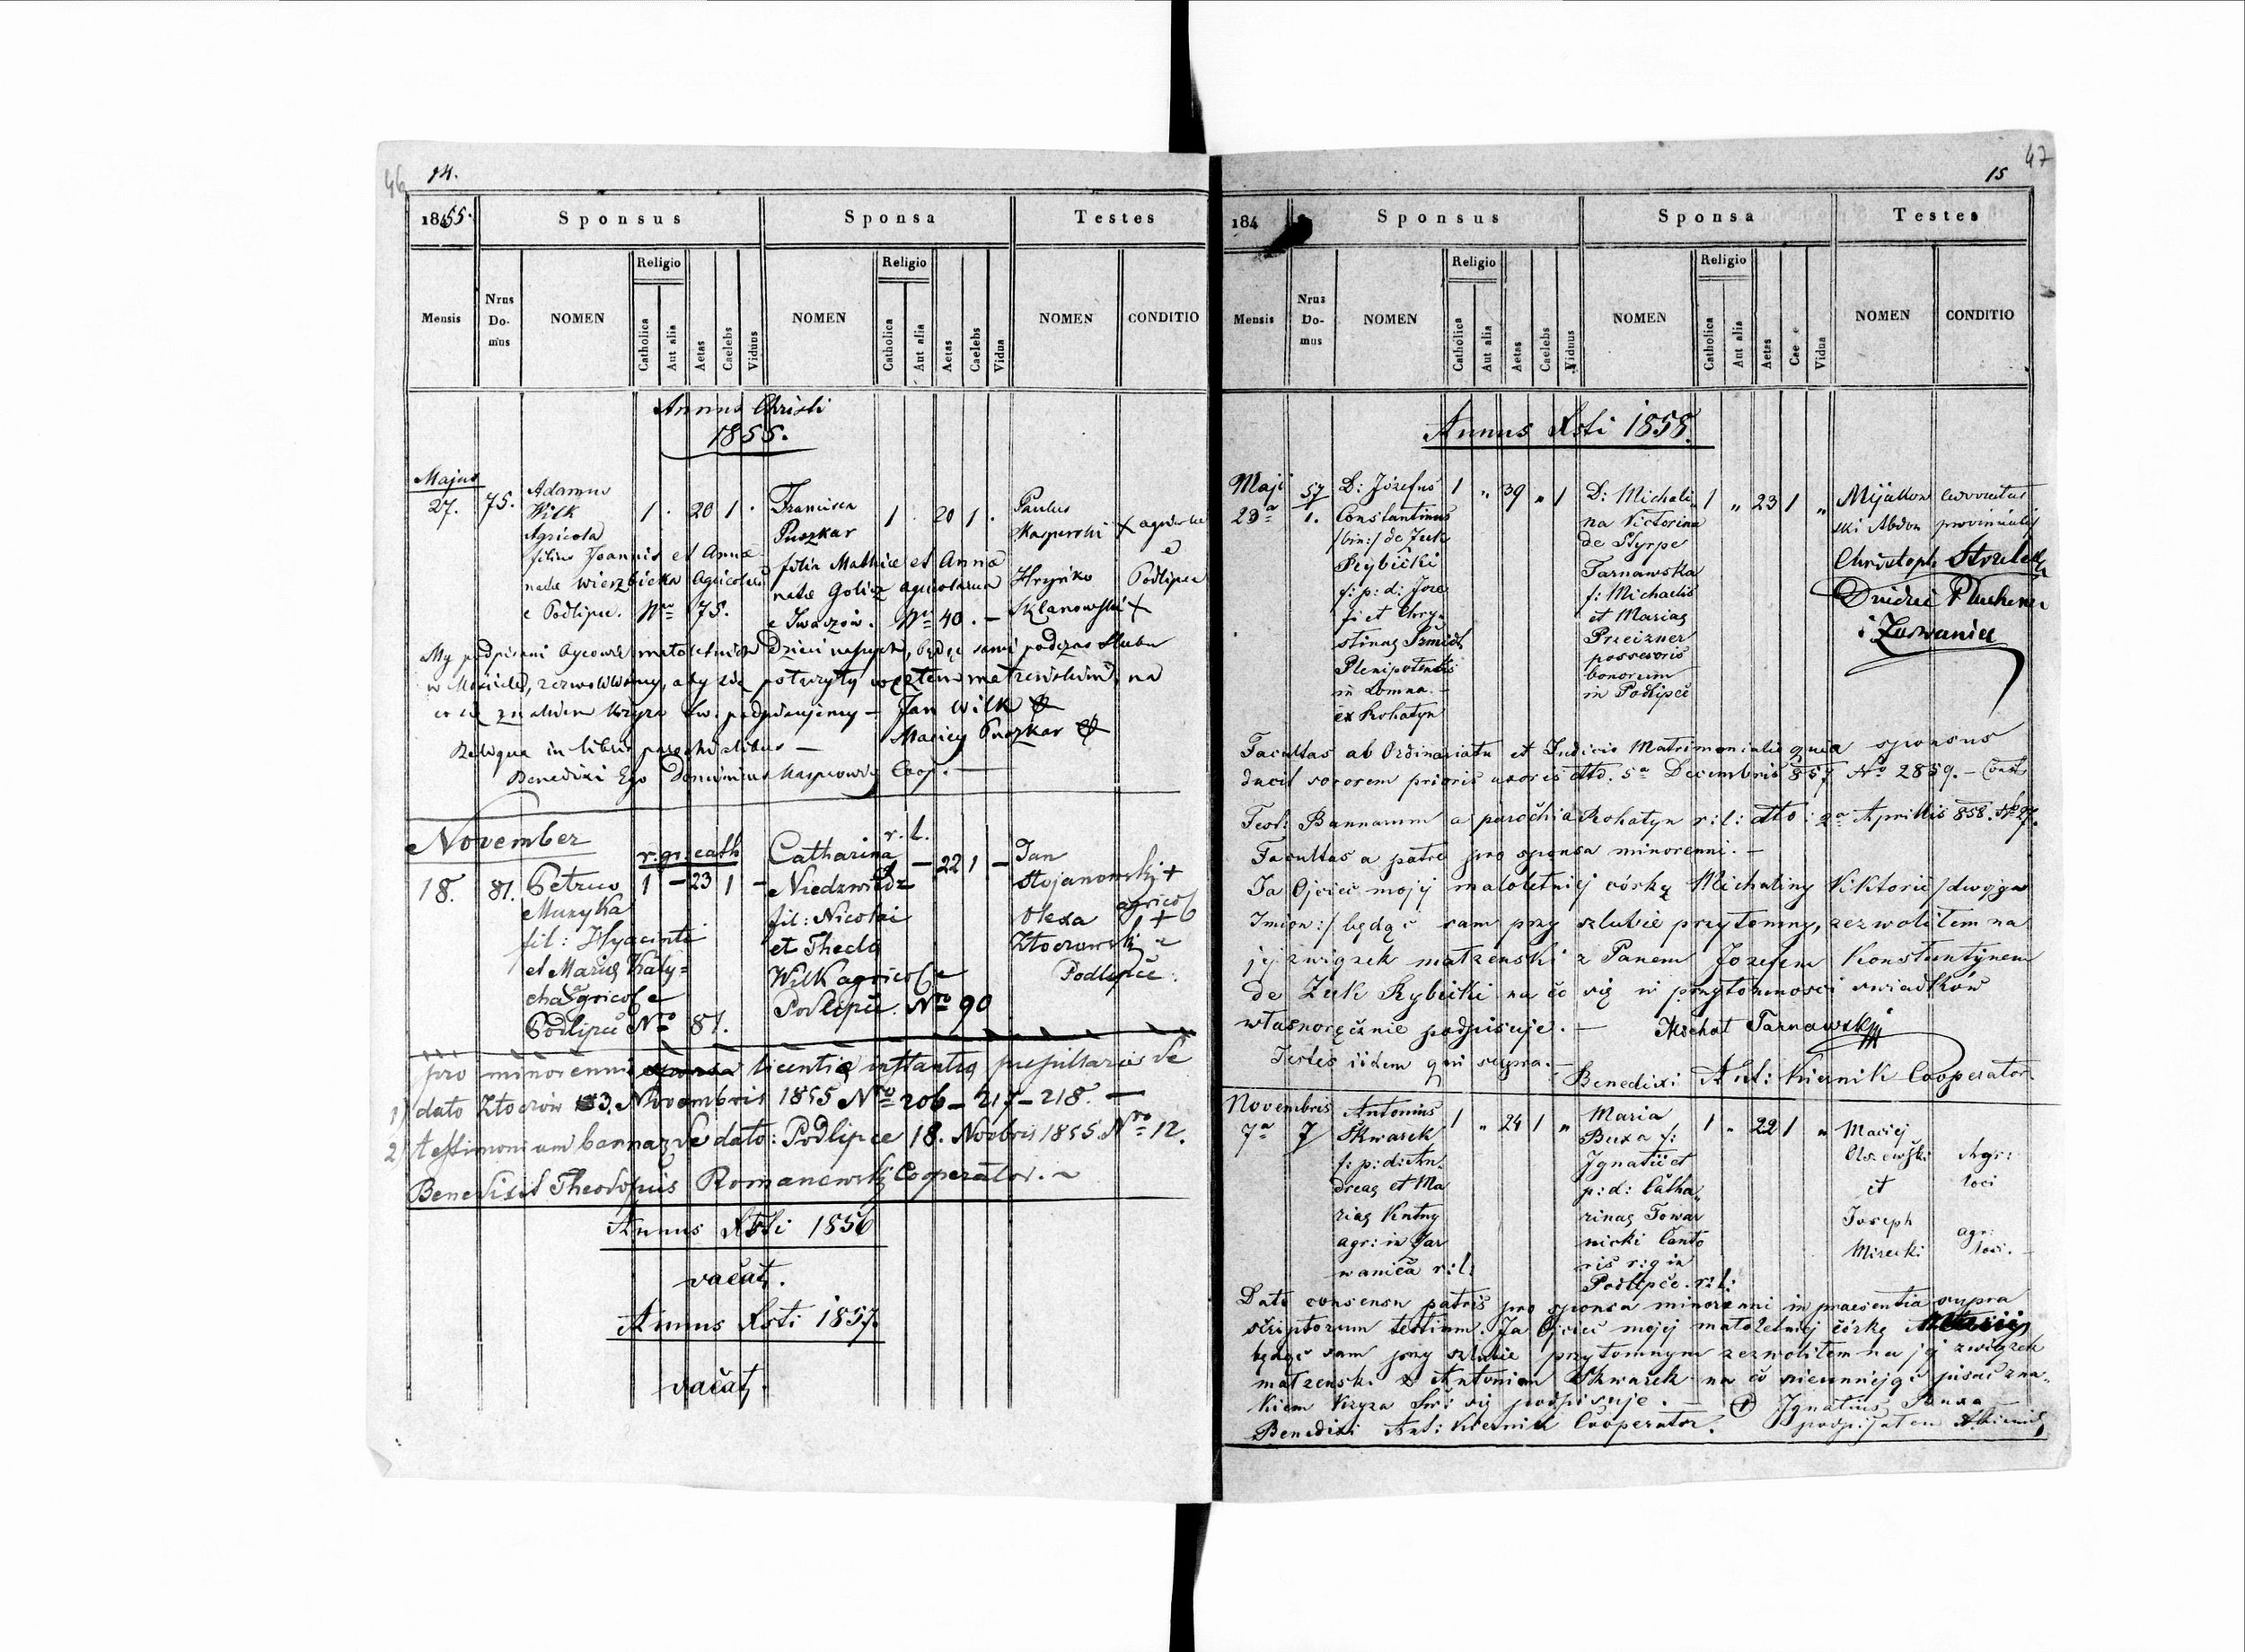 46 14.
1855. Sponsus Sponsa Testes
Mensis Nrus Do- mus NOMEN Religio Catholica Aut alia Aetas Caelebs Viduus NOMEN Religio Catholica Aut alia Aetas Caelebs Vidua NOMEN CONDITIO
Annus Christi
1855.
Majus
27. 75.
Adamus
Wilk
Agricola
filius Joannis et Annæ
natæ Wierzbicka Agicolarum
e Podlipce. Nro 75.
1 . 20 1 .
Francisca
Puszkar
filia Mathiæ et Annæ
natæ Golicz agricolarum
e Iwaszów. Nro 40. —
1 . 20 1 .
Paulus
Kasperski + agricolæ
e
Hryńko Podlipce
Sklanowski +
My podpisani Oycowie małoletnich Dzieci naszych, będąc sami podczas ślubu
w Kościele, zezwoliliśmy, aby się połączyły węzłem małżeńskim, na
co się znakiem krzyża św. podpisujemy — Jan Wilk +
Maciey Puszkar +
Reliqua in libris parochialibus —
Benedixi Ego Dominicus Kasperowicz Coop. —
November
18. 81.
r. gr. cath
Petrus
Muzyka
fil: Hyacinti
et Mariæ Kaly=
cha agricol e
Podlipce Nro 81.
1 — 23 1 —
r. l.
Catharina
Niedzwiedz
fil: Nicolai
et Thecla
Wilk agricol e
Podlipce. Nro 90
— 22 1 —
Jan
Stojanowski +
agricol
Olexa +
Złoczowski e
Podlipce.
pro minorenni licentia instantiæ pupillaris de
1) dato Złoczów 3. Novembris 1855 Nro 206 — 217 — 218. —
2) testimonium bannaz de dato: Podlipce 18. Novbris 1855. Nro 12.
Benedixit Theodosius Romanowski Cooperator. ~
Annus Xsti 1856
vacat.
Annus Xsti 1857.
vacat.
47 15
184 Sponsus Sponsa Testes
Mensis Nrus Do- mus NOMEN Religio Catholica Aut alia Aetas Caelebs Viduus NOMEN Religio Catholica Aut alia Aetas Cae e Vidua NOMEN CONDITIO
Annus Xsti 1858.
Maji
23a
57
1.
D: Józefus
Constantinus
/bin:/ de Żuk
Rybicki
f: p: d: Jose
fi et Chry,,
stinæ Szmidt
Plenipotentis
in Łomna. —
ex Rohatyn
1 „ 39 „ 1
D: Michali,,
na Victorina
de Styrpe
Tarnawska
f: Michaelis
et Mariæ
Przeizner
possesoris
bonorum
in Podlipce
1 „ 23 1 „
Mijakow
ski Abdon provincialis
Christoph Strzelecki
Facultas ab Ordinariatu et Judicio Matrimoniali quia sponsus
ducit sororem prioris uxoris dto. 5a Decembris 857 No 2859. —
Test: Bannarum a parochia Rohatyn r: l: dto: 2a Aprilis 858. No 27.
Facultas a patre pro sponsa minorenni. —
Ja Ojciec mojej małoletniej córkę Michaliny Viktorii /dwojga
Imion:/ będąc sam przy szlubie przytomny, zezwoliłem na
jej związek małżenski z Panem Józefem Konstantynem
de Żuk Rybicki na co się w przytomności swiadków
własnoręcznie podpisuje. — Michał Tarnawski
Testes iidem qui supra. — Benedixi Ant: Kiernik Cooperator
Novembris
7a 7
Antonius
Skwarek
f: p: d: An,,
dreæ et Ma
riæ Kutny
agr: in Jar
wanica r: l:
1 „ 24 1 „
Maria
Buxa f:
Ignatii et
p: d: Catha,,
rinæ Towar
nicki Canto
ris r: g in
Podlipce. r: l:
1 „ 22 1 „
Maciej
Olszewski Agr:
et loci
Joseph agr:
Mirecki loci. —
Dato consensu patris pro sponsa minorenni in praesentia supra
scriptorum testium. Ja Ojciec mojej małoletniej córkę
będąc sam przy szlubie przytomnym zezwoliłem na jej związek
małżenski z Antonim Skwarek na co nieumiejąc pisać zna,,
kiem krzyża Sw: się podpisuje. — + Ignatius Buxa
Benedixi Ant: Kiernik Cooperator. podpisałem